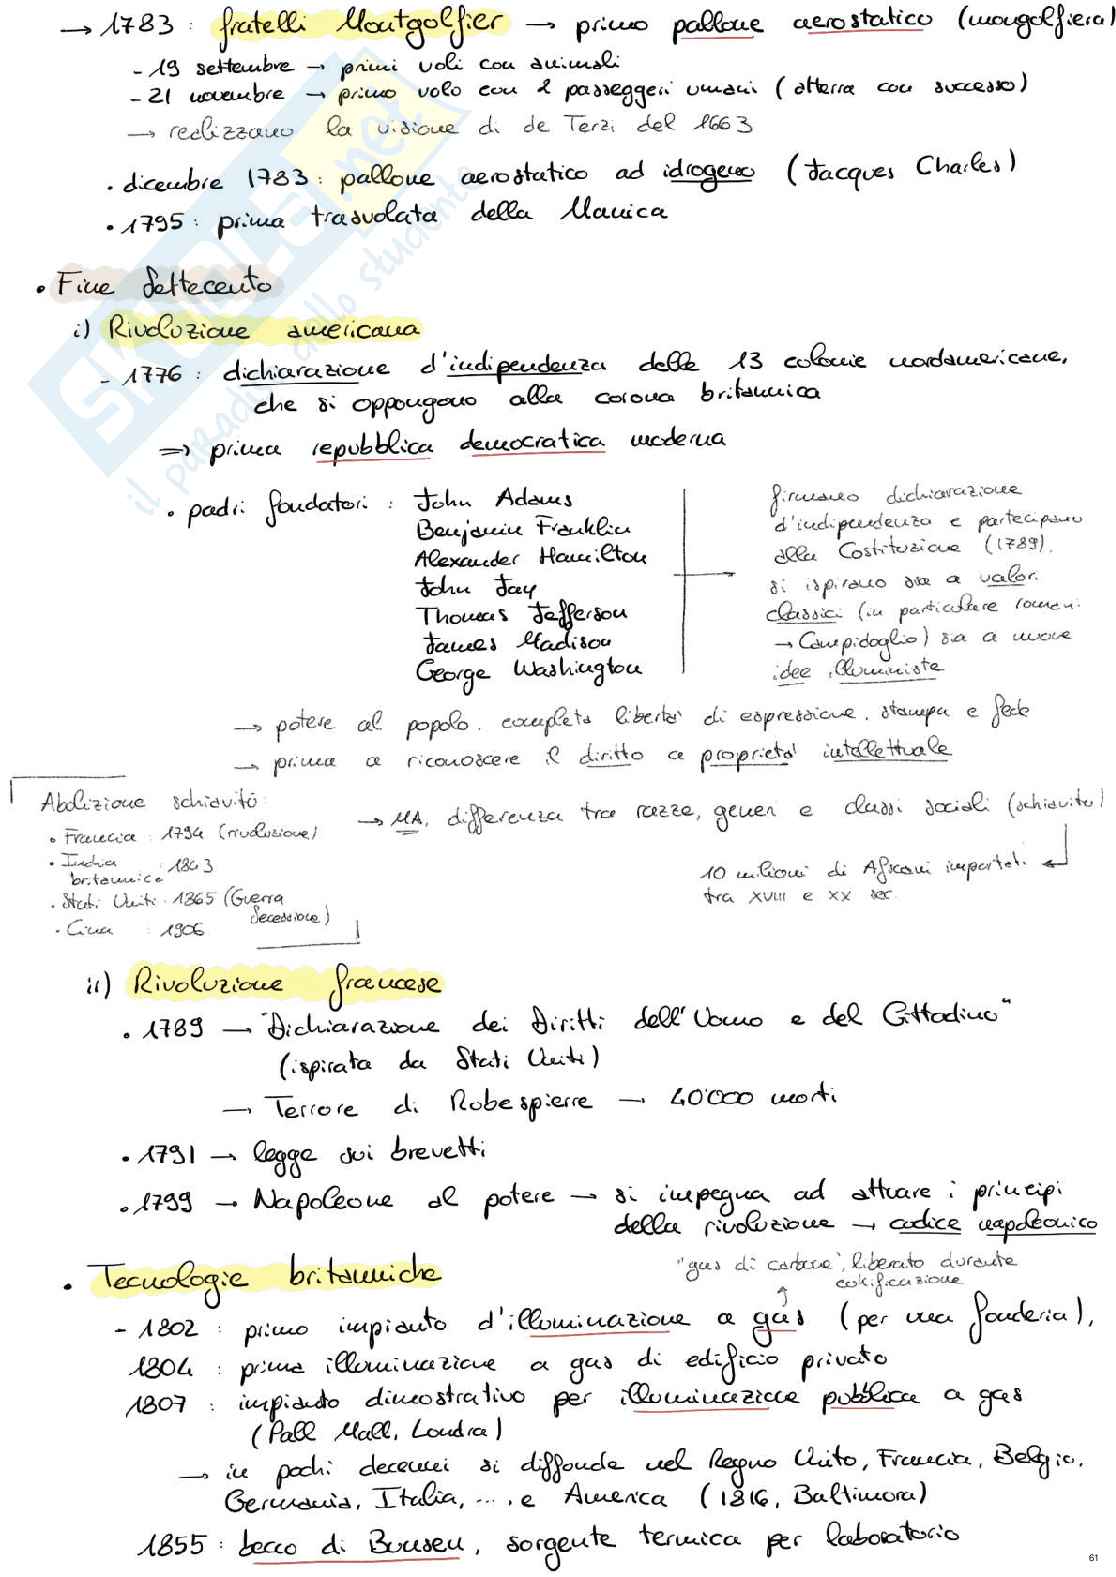 → 1783 : fratelli Montgolfier → primo pallone aerostatico (mongolfiera)
- 19 settembre → primi voli con animali
- 21 novembre → primo volo con 2 passeggeri umani (atterra con successo)
→ realizzano la visione di de Terzi del 1663
• dicembre 1783 : pallone aerostatico ad idrogeno (Jacques Charles)
• 1795 : prima trasvolata della Manica
• Fine Settecento
i) Rivoluzione americana
- 1776 : dichiarazione d'indipendenza delle 13 colonie nordamericane,
che si oppongono alla corona britannica
⇒ prima repubblica democratica moderna
• padri fondatori : John Adams
Benjamin Franklin
Alexander Hamilton
John Jay
Thomas Jefferson
James Madison
George Washington
firmano dichiarazione
d'indipendenza e partecipano
alla Costituzione (1789).
si ispirano sia a valori
classici (in particolare romani
→ Campidoglio) sia a nuove
idee illuministe
→ potere al popolo, completa libertà di espressione, stampa e fede
→ prima a riconoscere il diritto a proprietà intellettuale
→ MA, differenza tra razze, generi e classi sociali (schiavitù)
10 milioni di Africani importati
tra XVIII e XX sec.
Abolizione schiavitù:
• Francia : 1794 (rivoluzione)
• India : 1843
britannica
• Stati Uniti : 1865 (Guerra
Secessione)
• Cina : 1906
ii) Rivoluzione francese
• 1789 → "Dichiarazione dei Diritti dell'Uomo e del Cittadino"
(ispirata da Stati Uniti)
→ Terrore di Robespierre → 40'000 morti
• 1791 → legge sui brevetti
• 1799 → Napoleone al potere → si impegna ad attuare i principi
della rivoluzione → codice napoleonico
• Tecnologie britanniche
"gas di carbone", liberato durante
cokificazione
- 1802 : primo impianto d'illuminazione a gas (per una fonderia),
1804 : prima illuminazione a gas di edificio privato
1807 : impianto dimostrativo per illuminazione pubblica a gas
(Pall Mall, Londra)
→ in pochi decenni si diffonde nel Regno Unito, Francia, Belgio,
Germania, Italia, ..., e America (1816, Baltimora)
1855 : becco di Bunsen, sorgente termica per laboratorio
61
SKUOLA.net
il paradiso dello studente